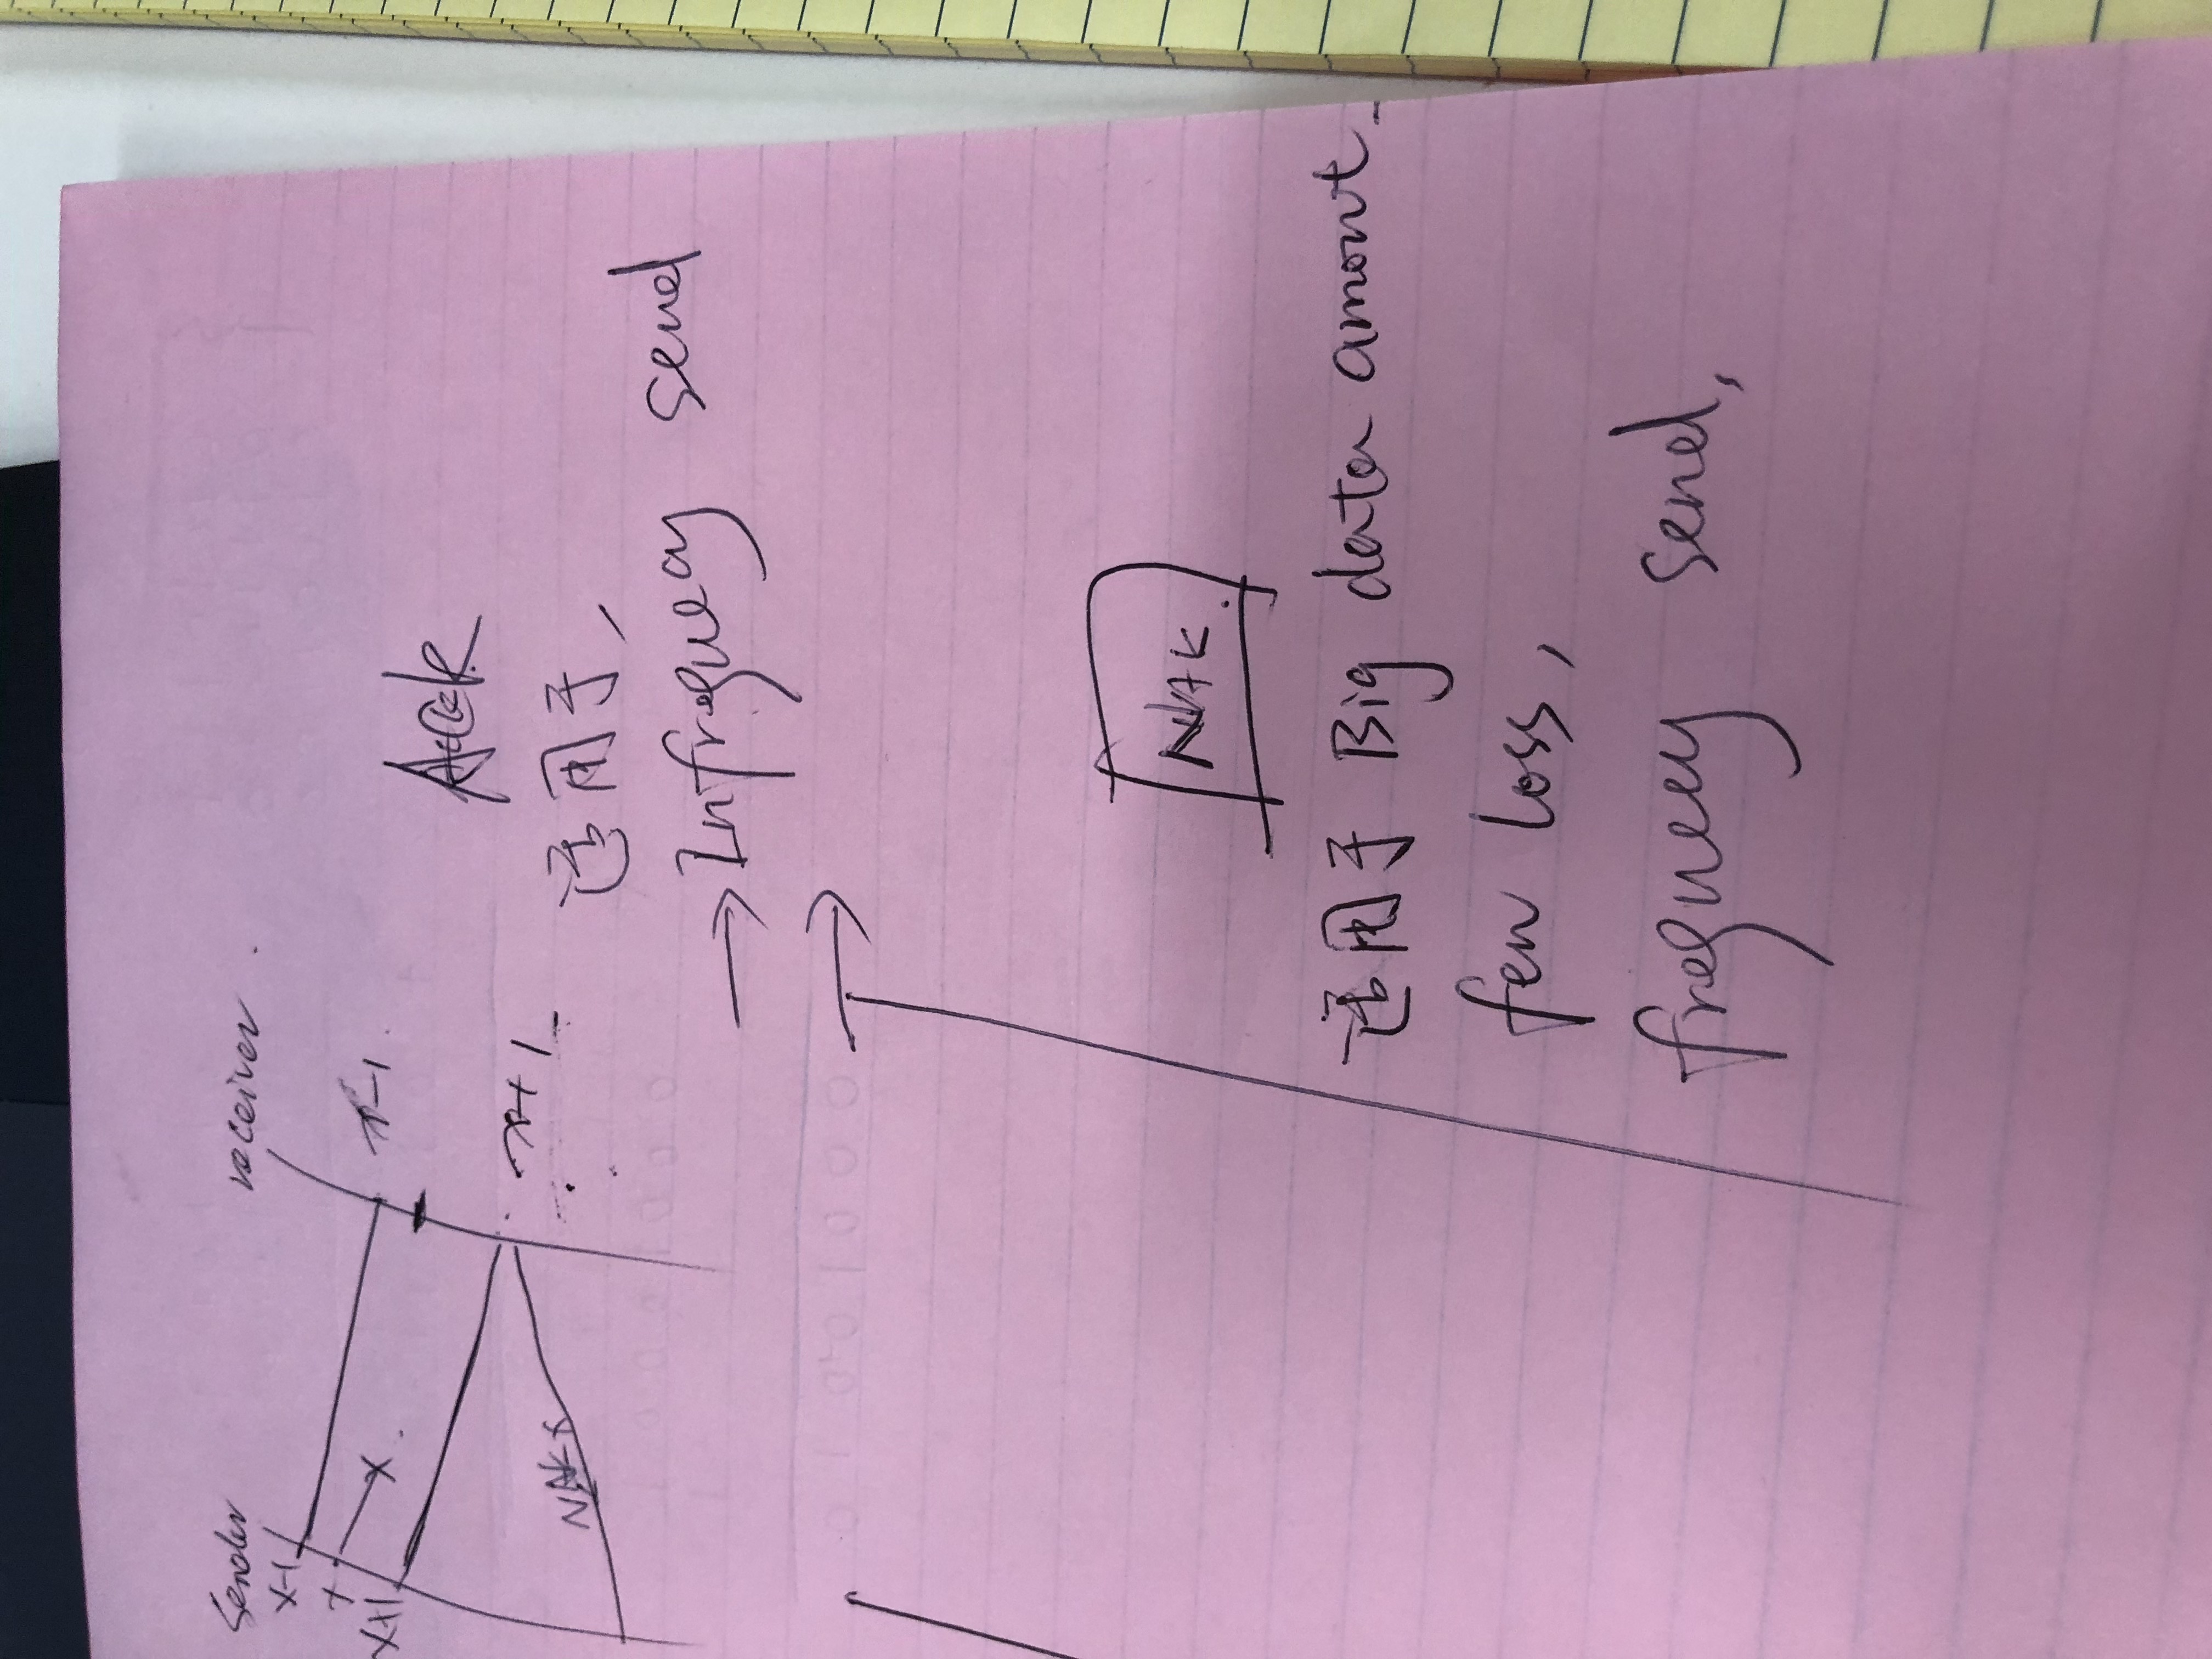 Sender receiver.
x-1
x x.
x-1.
x+1
x+1
NAK x
Ack
适用于,
→ Infrequecy send
→
NAK.
适用于 Big data amont
few loss,
frequecy send,